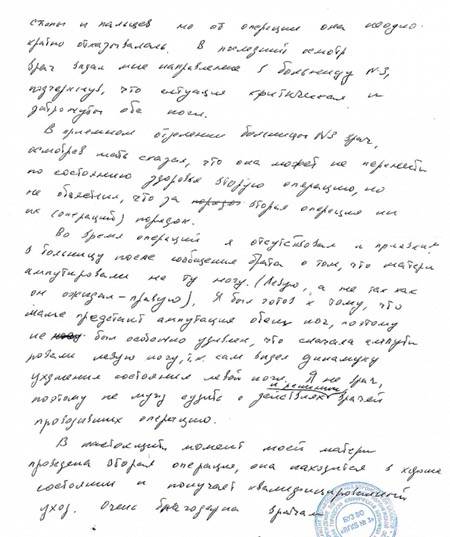 стопы и пальцев но от операции она неодно-
кратно отказывалась. В последний осмотр
врач выдал мне направление в больницу N3,
подчеркнув, что ситуация критическая и
обе ноги.
В приемном отделении больницы N3 врач,
осмотрев мать сказал, что она может не перенести
по состоянию здоровья вторую операцию, но
не объяснил, что за вторая операция ни
их (операций) порядок.
Во время операции я отсутствовал и приехал
в больницу после сообщения брата о том, что матери
ампутировали не ту ногу. (Левую, а не так как
он ожидал - правую). Я был готов к тому, что
маме предстоит ампутация обеих ног, поэтому
не был особенно удивлен, что сначала ампути
ровали левую ногу, т.к. сам видел динамику
ухудшения состояния левой ноги. Я не врач,
поэтому не могу судить о действиях и решениях врачей
проводивших операцию.
В настоящий момент моей матери
проведена вторая операция, она находится в хорошем
состоянии и получает квалифицированный
уход. Очень благодарна врачам